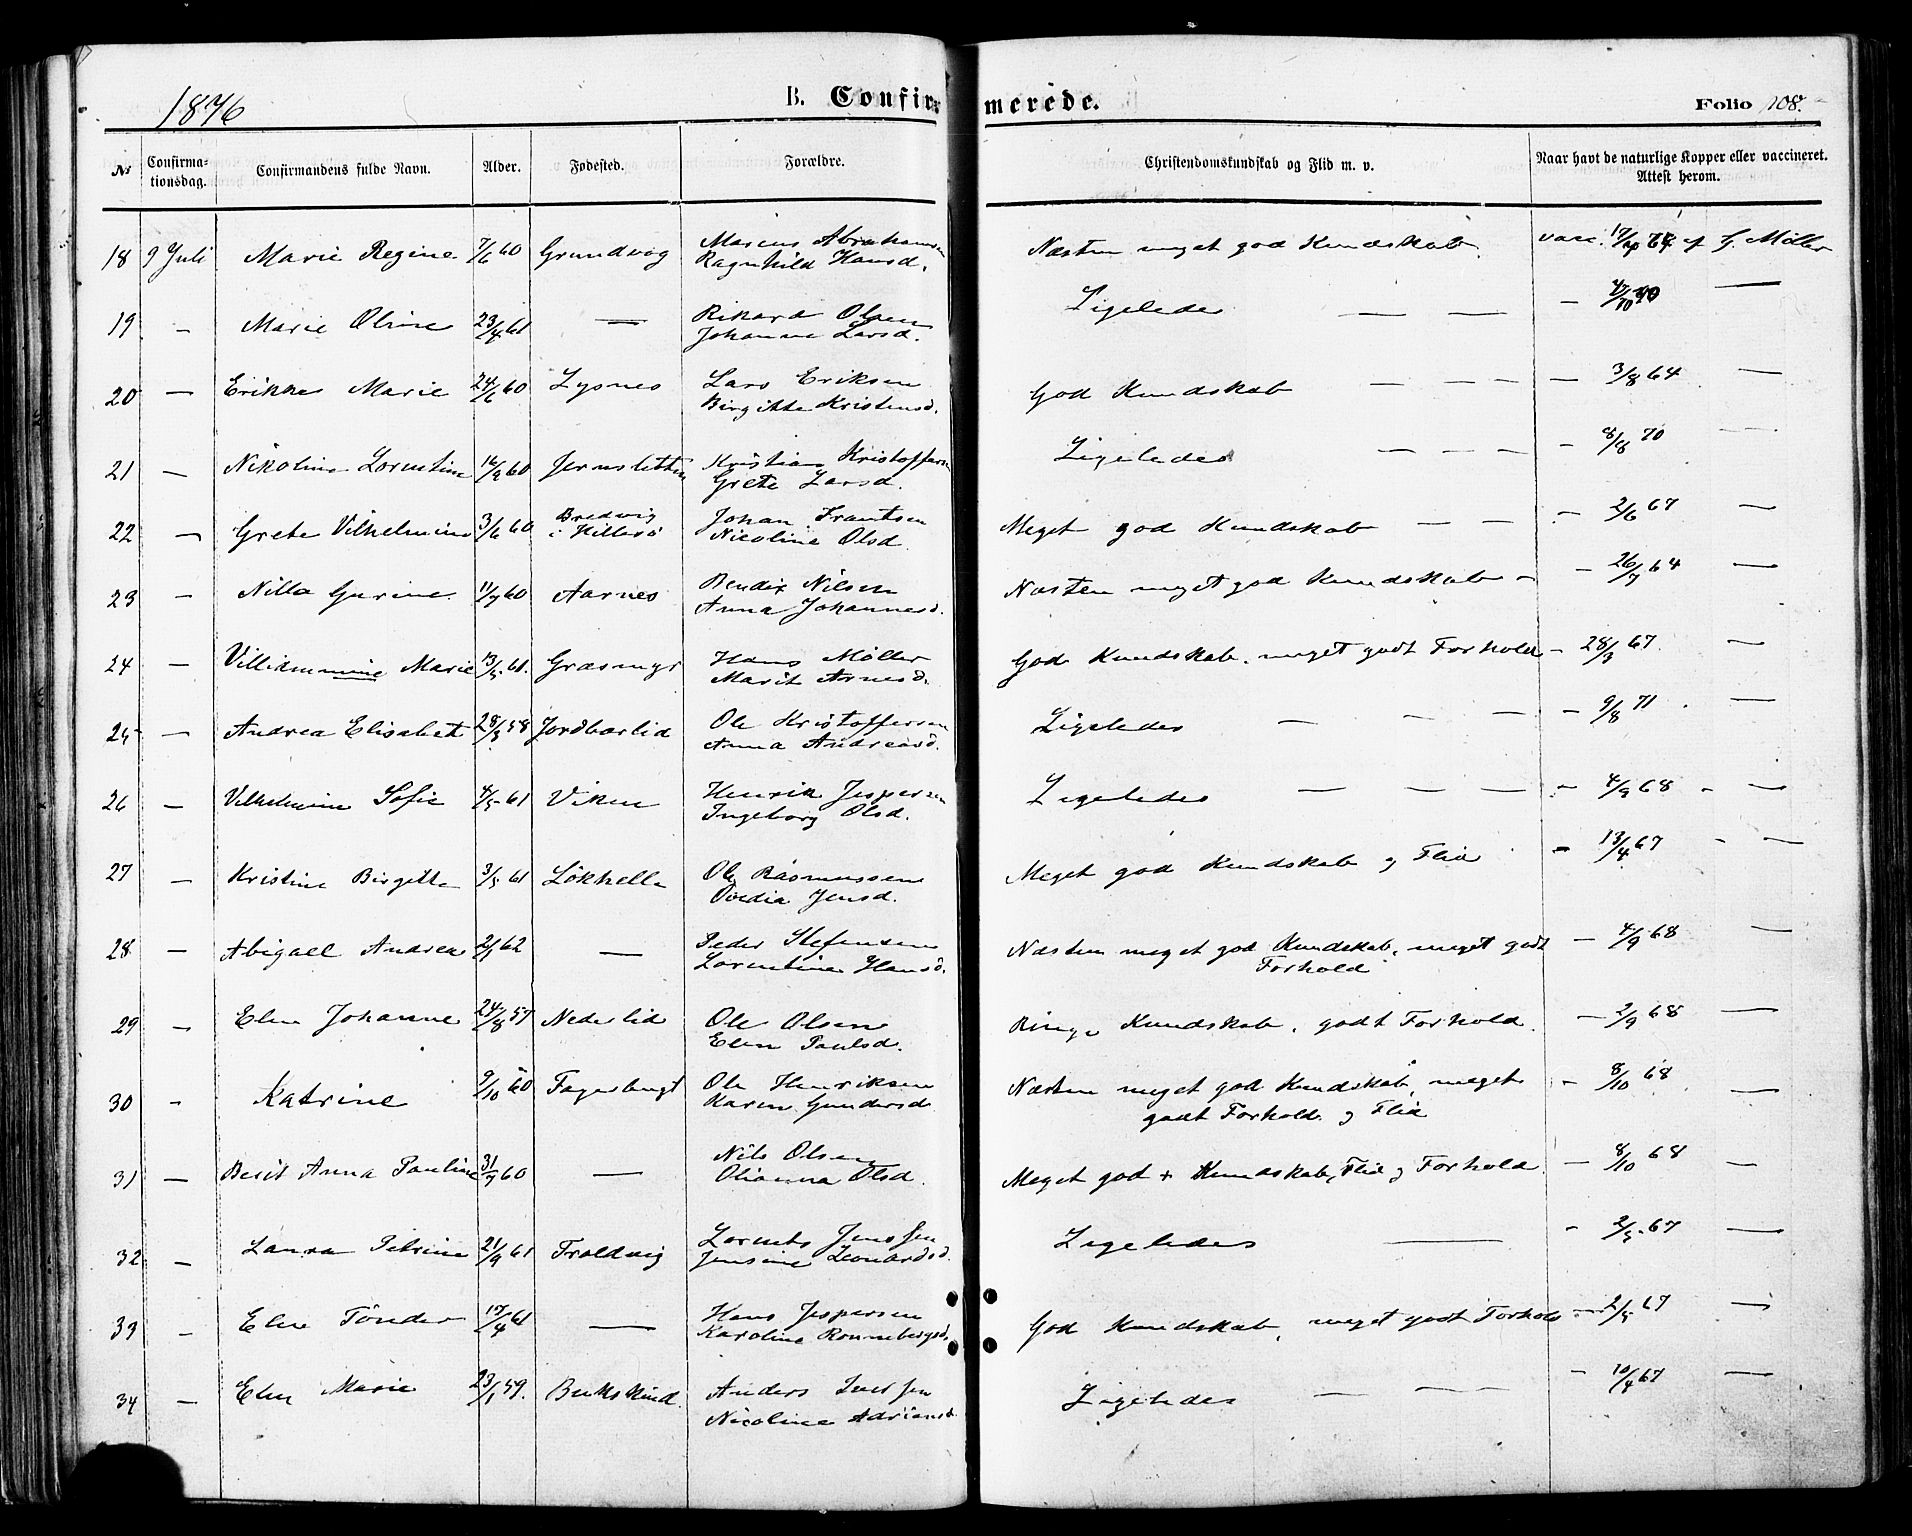 1876 B. Confirmerede. Folio 108.
No Confirmationsdag. Confirmandens fulde Navn. Alder. Fødested. Forældre. Christendomskundskab og Flid m. v. Naar havt de naturlige Kopper eller vaccineret. Attest herom.
18 9 Juli Marie Regine 7/6 60 Grundvog Marius Abrahamsen Næsten meget god Kundskab. vacc. af G. Møller
Ragnhild Hansd.
19 – Marie Oline 23/4 61 — Rikard Olsen Ligeledes — — – —
Johanna Larsd.
20 — Erikka Marie 24/6 60 Lysnes Lars Eriksen God Kundskab — – – — 3/8 64 —
Birgitte Kristensd.
21 — Nikoline Lorentine 16/9 60 Jernsletten Kristian Kristoffersen Ligeledes — — — – 8/8 70 —
Grete Larsd.
22 — Grete Vilhelmine 3/6 60 Bredvig i Hillesø Johan Frantsen Meget god Kundskab — — – 2/6 67 —
Nicoline Olsd.
23 – Nilla Gurine 11/7 60 Aarnes Bendix Nilsen Næsten meget god Kundskab – – 26/7 64 —
Anna Johannesd.
24 — Villiamine Marie 13/5 61. Græsmyr Hans Møller God Kundskab, meget godt Forhold – 28/3 67. —
Marit Arnesd.
25 — Andrea Elisabet 28/3 58 Jordbærlid Ole Kristoffersen Ligeledes — — — – 9/8 71. —
Anna Andreasd.
26 — Vilhelmine Sofie 4/5 61 Viken Henrik Jespersen Ligeledes — — — – 4/9 68 – —
Ingeborg Olsd.
27 — Kristine Birgitte 3/5 61 Løkhella Ole Rasmussen Meget god Kundskab og Flid – 13/4 67 – —
Ovedia Jensd.
28 — Abigael Andrea 2/1 62 — Peder Stefensen Næsten meget god Kundskab, meget godt — 4/9 68 —
Lorentine Hansd. Forhold
29 – Elen Johanne 24/8 57 Nederlid Ole Olsen Ringe Kundskab, godt Forhold. – 2/9 68 —
Elen Paulsd.
30 – Katrine 9/10 60 Fagerbugt Ole Henriksen Næsten meget god Kundskab, meget – 8/10 68 —
Karen Gundersd. godt Forhold og Flid
31 — Berit Anna Pauline 31/7 60 — Nils Olsen Meget god Kundskab, Flid og Forhold. — 8/10 68 —
Olianna Olsd.
32 – Laura Petrine 21/9 61 Troldvig Lorents Jenssen Ligeledes — – 2/5 67 —
Jensine Leonardsd.
33 – Elen Tønder 17/4 61 — Hans Jespersen God Kundskab, meget godt Forhold – 2/5 67 —
Karoline Ronnebergsd.
34 — Elen Marie 23/1 59. Bukskind Anders Iversen Ligeledes — — — – 10/4 67 —
Nicoline Adriansd.